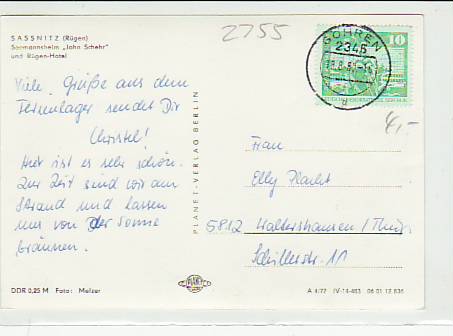 2755
SASSNITZ (Rügen)
Seemannsheim „John Schehr"
und Rügen-Hotel
GÖHREN
2345
10
4,-
Viele Grüße aus dem
Ferienlager sendet Dir
Christel!
Hier ist es sehr schön.
Zur Zeit sind wir am
Strand und lassen
uns von der Sonne
bräunen.
PLANET-VERLAG BERLIN
Frau
Elly Placht
5812 Waltershausen / Thür.
Schillerstr. 11
PLANET
DDR 0,25 M Foto: Melzer
A 4/77 IV-14-483 06 01 12 836